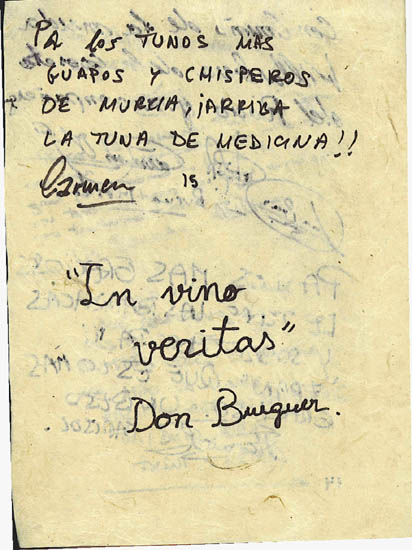 PA los TUNOS MAS
GUAPOS Y CHISPEROS
DE MURCIA, ¡ARRIBA
LA TUNA DE MEDICINA!!
Carmen 15
"In vino
veritas"
Don Burguer.